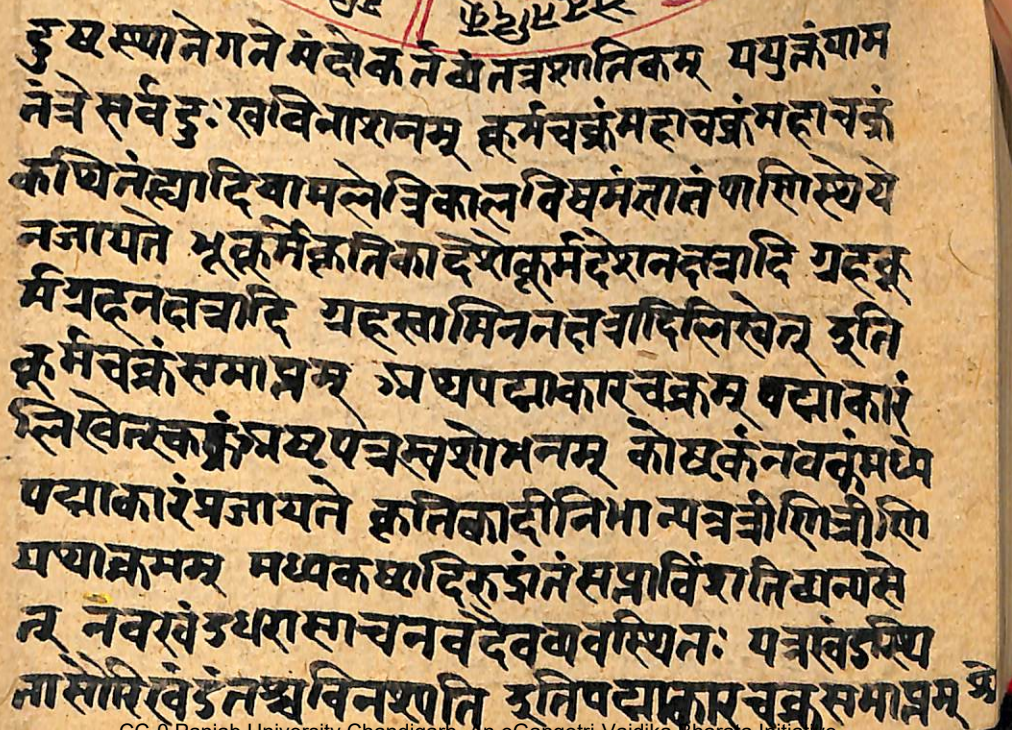 दुष्टस्थानेगतेमंदोकर्तव्यंतत्रशांतिकम् यद्युक्तंयाम
तंत्रेसर्वदुःखविनाशनम् कूर्मचक्रंमहाचक्रंमहाचक्रं
कथितंह्यादियामले त्रिकालविषमंज्ञानंपाणिस्थंये
नजायते भूकूर्मकृतिकादेशेकूर्मदेशनक्षत्रादि ग्रहकू
र्मग्रहनक्षत्रादि ग्रहस्वामिननक्षत्रादिलिखेत् इति
कूर्मचक्रंसमाप्तम् अथपद्माकारचक्रम् पद्माकारं
लिखेत् अष्टपत्रस्वशोभनम् कोष्टकंनव मध्ये
पद्माकारंप्रजायते कृतिकादीनिभान्यत्रत्रीणित्रीणि
यथाक्रमम् मध्यकष्टादिरुद्रांतंसप्ताविंशतिव्यन्यसे
त् नवखंडधरासाचनवदैवव्यवस्थितः यत्रखंडस्थि
तासौरिखंडंतश्चविनश्यति इतिपद्माकारचक्रसमाप्तम्
CC-0 Panjab University Chandigarh. An eGangotri Vaidika Bharata Initiative